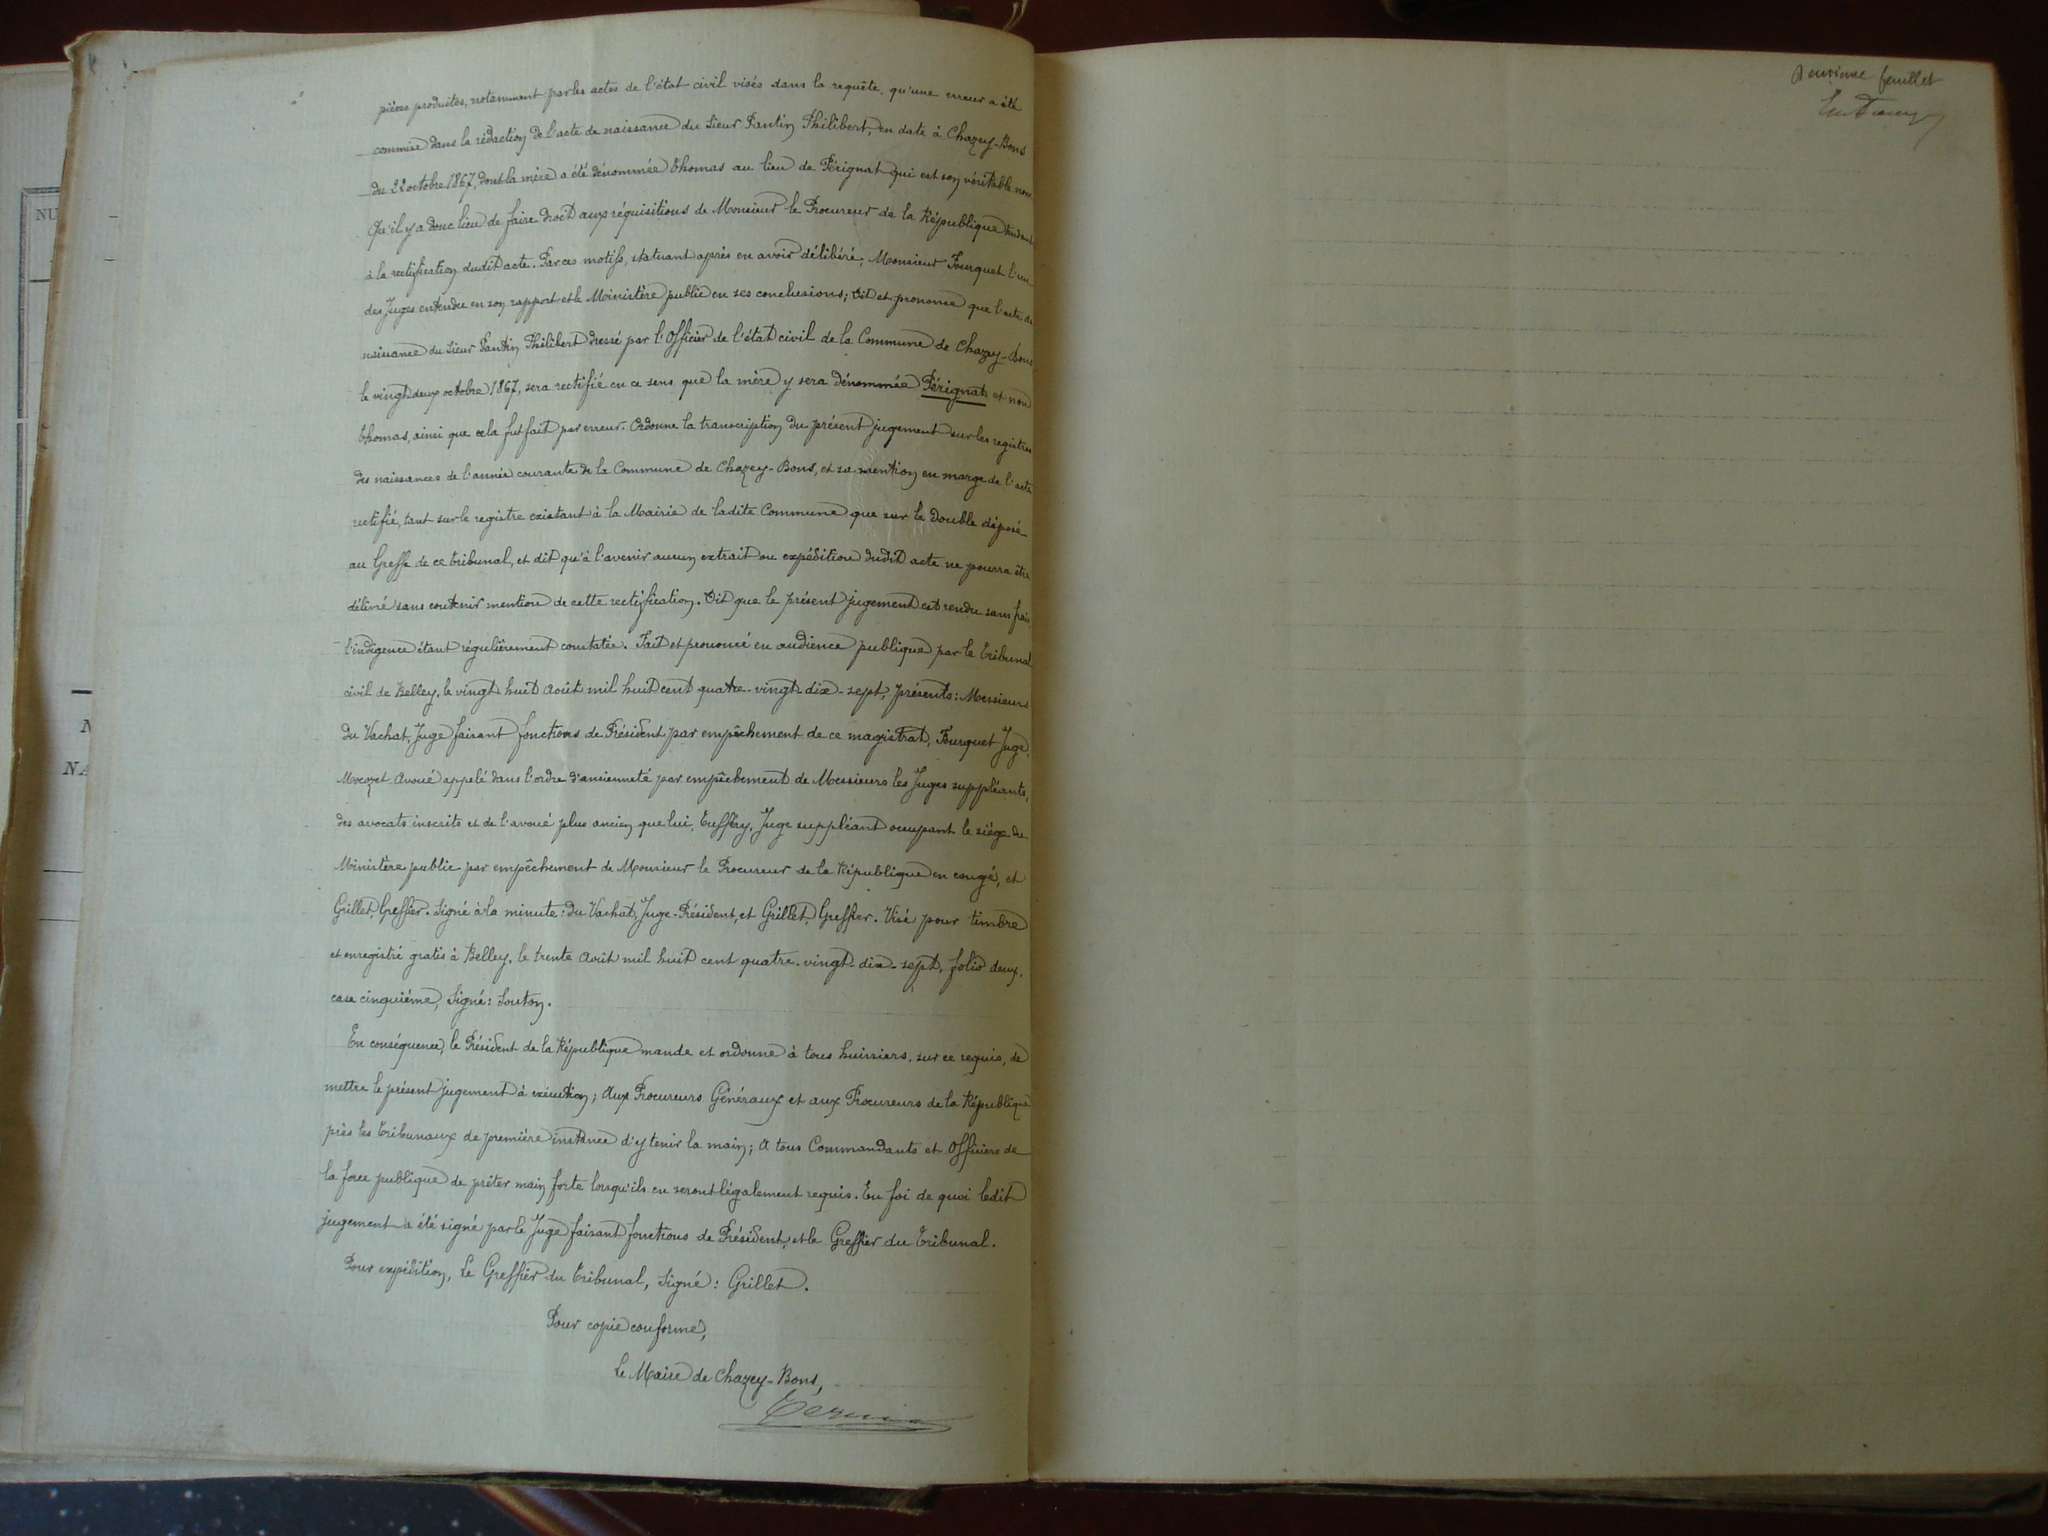 pièces produites, notamment par les actes de l'état civil visés dans la requête, qu'une erreur a été
commise dans la rédaction de l'acte de naissance du Sieur Pantin Philibert, en date à Chazey-Bons
du 22 octobre 1867, dont la mère a été dénommée Thomas au lieu de Pérignat qui est son véritable nom
Qu'il y a donc lieu de faire droit aux réquisitions de Monsieur le Procureur de la République tendant
à la rectification dudit acte. Par ces motifs, statuant après en avoir délibéré, Monsieur Fourquet l'un
des Juges entendu en son rapport et le Ministère public en ses conclusions; Dit et prononce que l'acte de
naissance du Sieur Pantin Philibert dressé par l'Officier de l'état civil de la Commune de Chazey-Bons
le vingt deux octobre 1867, sera rectifié en ce sens que la mère y sera dénommée Pérignat et non
Thomas, ainsi que cela fut fait par erreur. Ordonne la transcription du présent jugement sur les registres
des naissances de l'année courante de la Commune de Chazey-Bons, et sa mention en marge de l'acte
rectifié, tant sur le registre existant à la Mairie de ladite Commune que sur le double déposé
au Greffe de ce tribunal, et dit qu'à l'avenir aucun extrait ou expédition dudit acte ne pourra être
délivré sans contenir mention de cette rectification. Dit que le présent jugement est rendu sans frais
l'indigence étant régulièrement constatée. Fait et prononcé en audience publique par le Tribunal
civil de Belley, le vingt huit Août mil huit cent quatre-vingt-dix-sept, présents: Messieurs
du Vachat, Juge faisant fonctions de Président par empêchement de ce magistrat, Fourquet Juge,
Avoué appelé dans l'ordre d'ancienneté par empêchement de Messieurs les Juges suppléants,
des avocats inscrits et de l'avoué plus ancien que lui, Juge suppléant occupant le siège du
Ministère public par empêchement de Monsieur le Procureur de la République en congé, et
Grillet, Greffier. Signé à la minute: du Vachat, Juge-Président, et Grillet, Greffier. Visé pour timbre
et enregistré gratis à Belley, le trente Août mil huit cent quatre-vingt-dix-sept, folio deux,
case cinquième, Signé: Souton.
En conséquence, le Président de la République mande et ordonne à tous huissiers, sur ce requis, de
mettre le présent jugement à exécution; Aux Procureurs Généraux et aux Procureurs de la République
près les tribunaux de première instance d'y tenir la main; A tous Commandants et Officiers de
la force publique de prêter main forte lorsqu'ils en seront légalement requis. En foi de quoi ledit
jugement a été signé par le Juge faisant fonctions de Président, et le Greffier du Tribunal.
Pour expédition, Le Greffier du Tribunal, Signé: Grillet.
Pour copie conforme,
Le Maire de Chazey-Bons,
feuillet